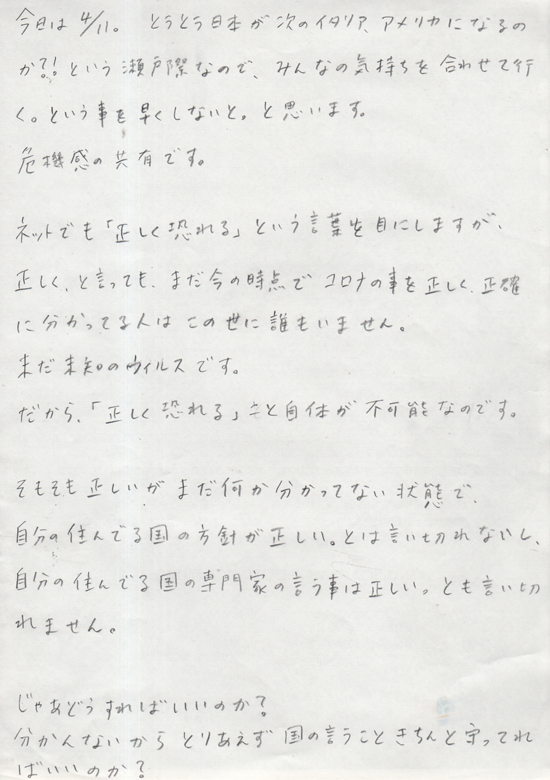 今日は 4/11。 とうとう日本が次のイタリア、アメリカになるの
か?!という瀬戸際なので、みんなの気持ちを合わせて行
く。という事を早くしないと。と思います。
危機感の共有です。
ネットでも「正しく恐れる」という言葉を目にしますが、
正しく、と言っても、まだ今の時点で コロナの事を正しく、正確
に分かってる人は この世に誰もいません。
まだ未知のウィルスです。
だから、「正しく恐れる」こと自体が 不可能なのです。
そもそも正しいが まだ何か分かってない状態で、
自分の住んでる国の方針が正しい。とは言い切れないし、
自分の住んでる国の専門家の言う事は正しい。とも言い切
れません。
じゃあどうすればいいのか?
分かんないから とりあえず 国の言うこときちんと守ってれ
ばいいのか?